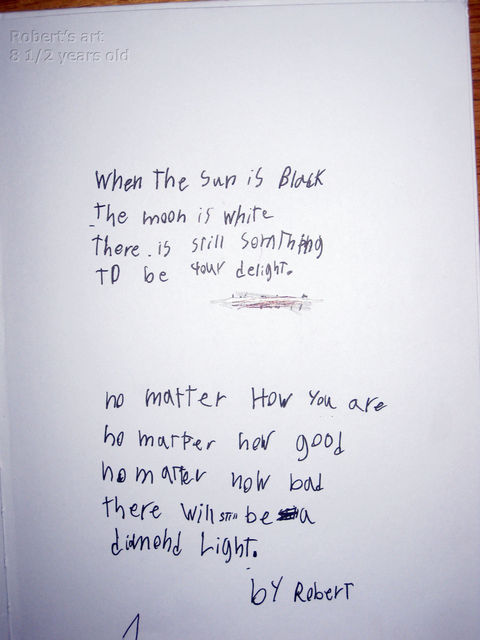 Robert's art
8 1/2 years old
When the sun is Black
the moon is white
there is still somthing
to be your delight.
no matter How You are
no matter how good
no matter how bad
there will still be a
dimond Light.
by Robert